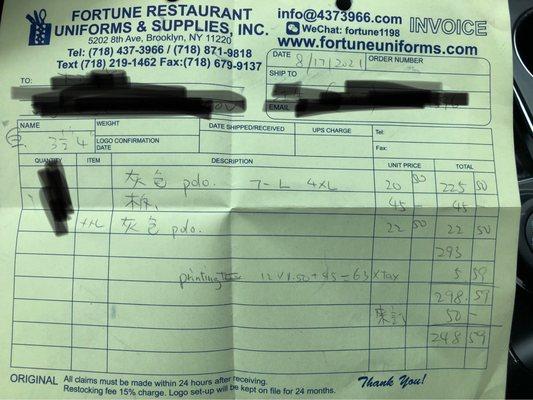 FORTUNE RESTAURANT
UNIFORMS & SUPPLIES, INC.
5202 8th Ave, Brooklyn, NY 11220
Tel: (718) 437-3966 / (718) 871-9818
Text (718) 219-1462 Fax:(718) 679-9137
info@4373966.com
WeChat: fortune1198
INVOICE
www.fortuneuniforms.com
DATE 8/17/2021 ORDER NUMBER
TO:
SHIP TO
EMAIL
NAME WEIGHT DATE SHIPPED/RECEIVED UPS CHARGE Tel:
LOGO CONFIRMATION DATE Fax:
QUANTITY ITEM DESCRIPTION UNIT PRICE TOTAL
灰色 polo. 7-L 4XL 20 50 225 50
45 - 45 -
灰色 polo. 22 50 22 50
293
printing 12 x 1.50 + 45 = 63 x Tax 5 59
298.59
50 -
248 59
ORIGINAL All claims must be made within 24 hours after receiving.
Restocking fee 15% charge. Logo set-up will be kept on file for 24 months.
Thank You!